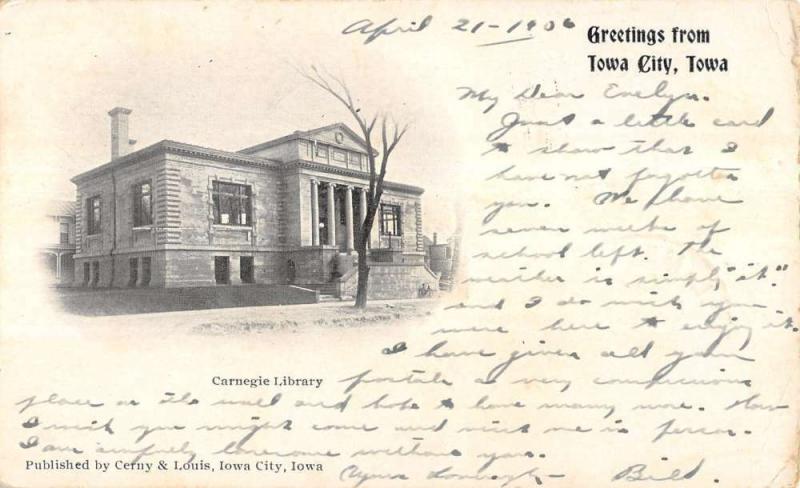 April 21-1906
Greetings from
Iowa City, Iowa
My Dear Evelyn.
Just a little card
to show that I
have not forgotten
you. We have
seven weeks of
school left. The
weather is simply "it."
and I do wish you
were here to enjoy it.
I have given all your
postals a very conspicuous
place on the wall and hope to have many more. How
I wish you might come and visit me in person.
I am awfully lonesome without you.
Bill.
Carnegie Library
Published by Cerny & Louis, Iowa City, Iowa